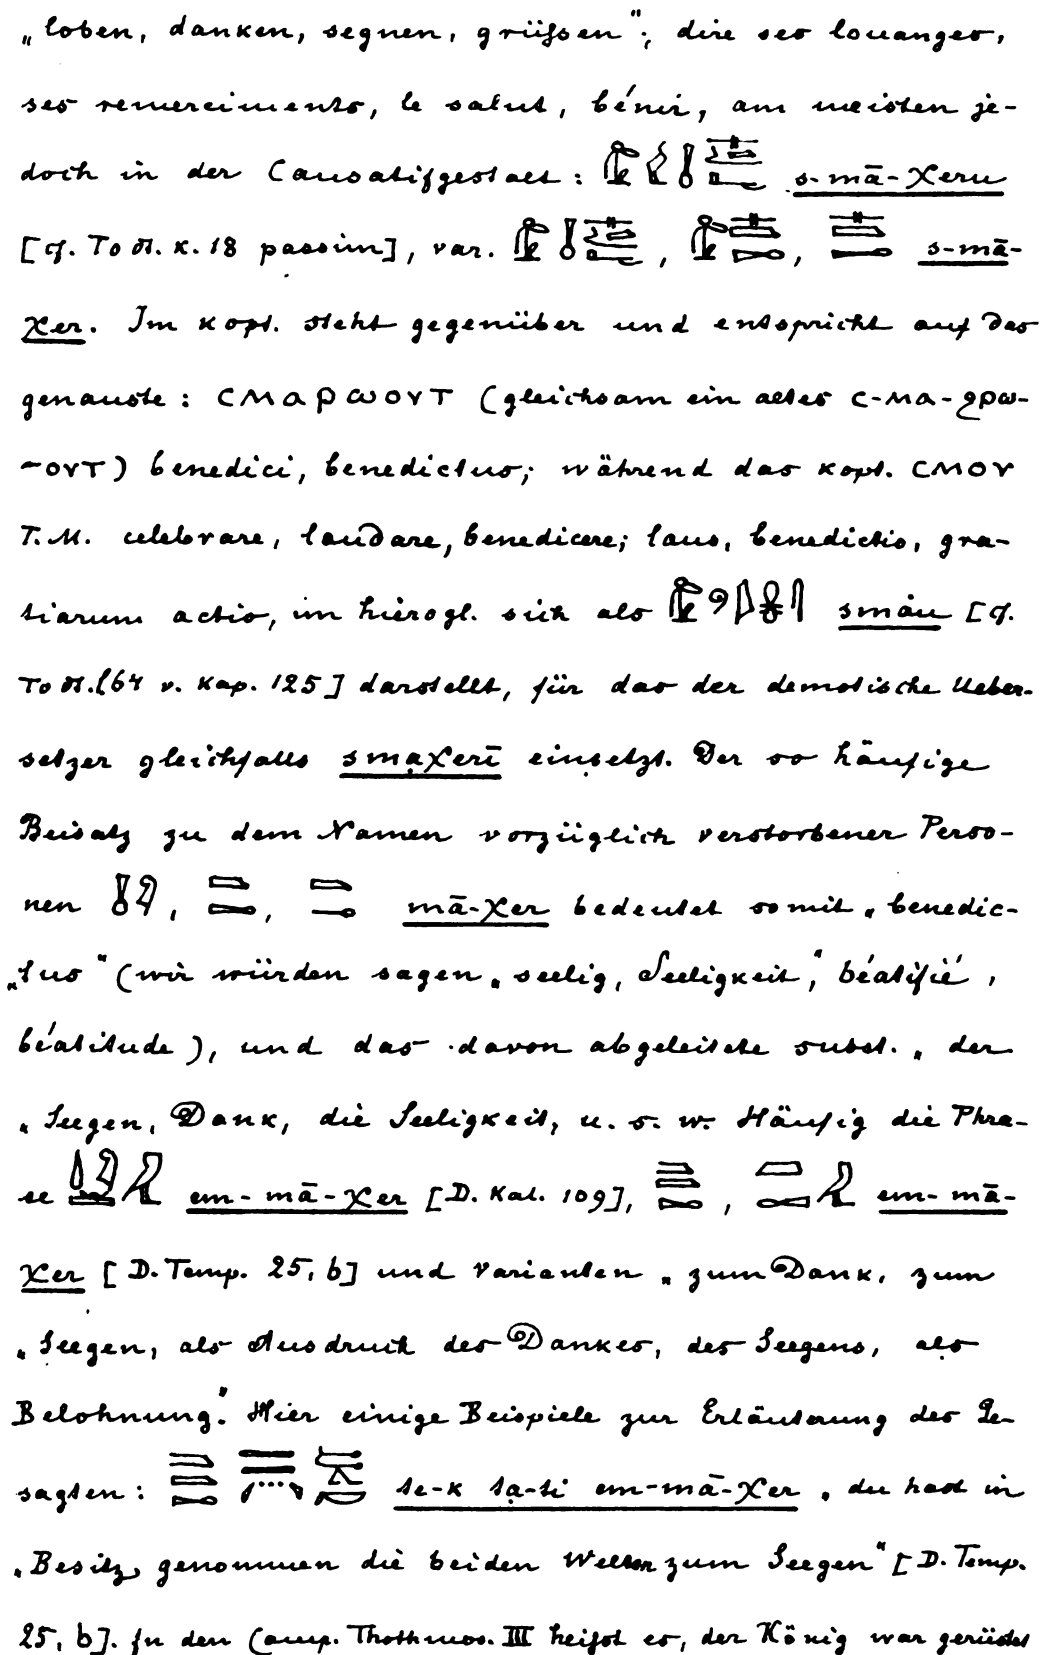 „loben, danken, segnen, grüßen“; dire ses louanges,
ses remerciments, le salut, bénir, am meisten je-
doch in der Causatifgestalt: s-mā-χeru
[cf. Todt. K. 18 passim], var. , , s-mā-
χer. Im kopt. steht gegenüber und entspricht auf das
genauste: ⲥⲙⲁⲣⲱⲟⲩⲧ (gleichsam ein altes ⲥ-ⲙⲁ-ϩⲣⲱ-
-ⲟⲩⲧ) benedici, benedictus; während das kopt. ⲥⲙⲟⲩ
T. M. celebrare, laudare, benedicere; laus, benedictio, gra-
tiarum actio, im hierogl. sich als smàu [cf.
Todt. 64 v. Kap. 125] darstellt, für das der demotische Ueber-
setzer gleichfalls smaχerī einsetzt. Der so häufige
Beisatz zu dem Namen vorzüglich verstorbener Perso-
nen , , mā-χer bedeutet somit „benedic-
„tus“ (wir würden sagen „seelig, Seeligkeit“, béatifié,
béatitude), und das davon abgeleitete subst. „der
„Seegen, Dank, die Seeligkeit, u. s. w. Häufig die Phra-
se em-mā-χer [D. Kal. 109], , em-mā-
χer [D. Temp. 25, b] und Varianten „zum Dank, zum
„Seegen, als Ausdruck des Dankes, des Seegens, als
Belohnung“. Hier einige Beispiele zur Erläuterung des Ge-
sagten: te-k ta-ti em-mā-χer „du hast in
„Besitz genommen die beiden Welten zum Seegen“ [D. Temp.
25, b]. In den Camp. Thothmos. III heißt es, der König war gerüstet